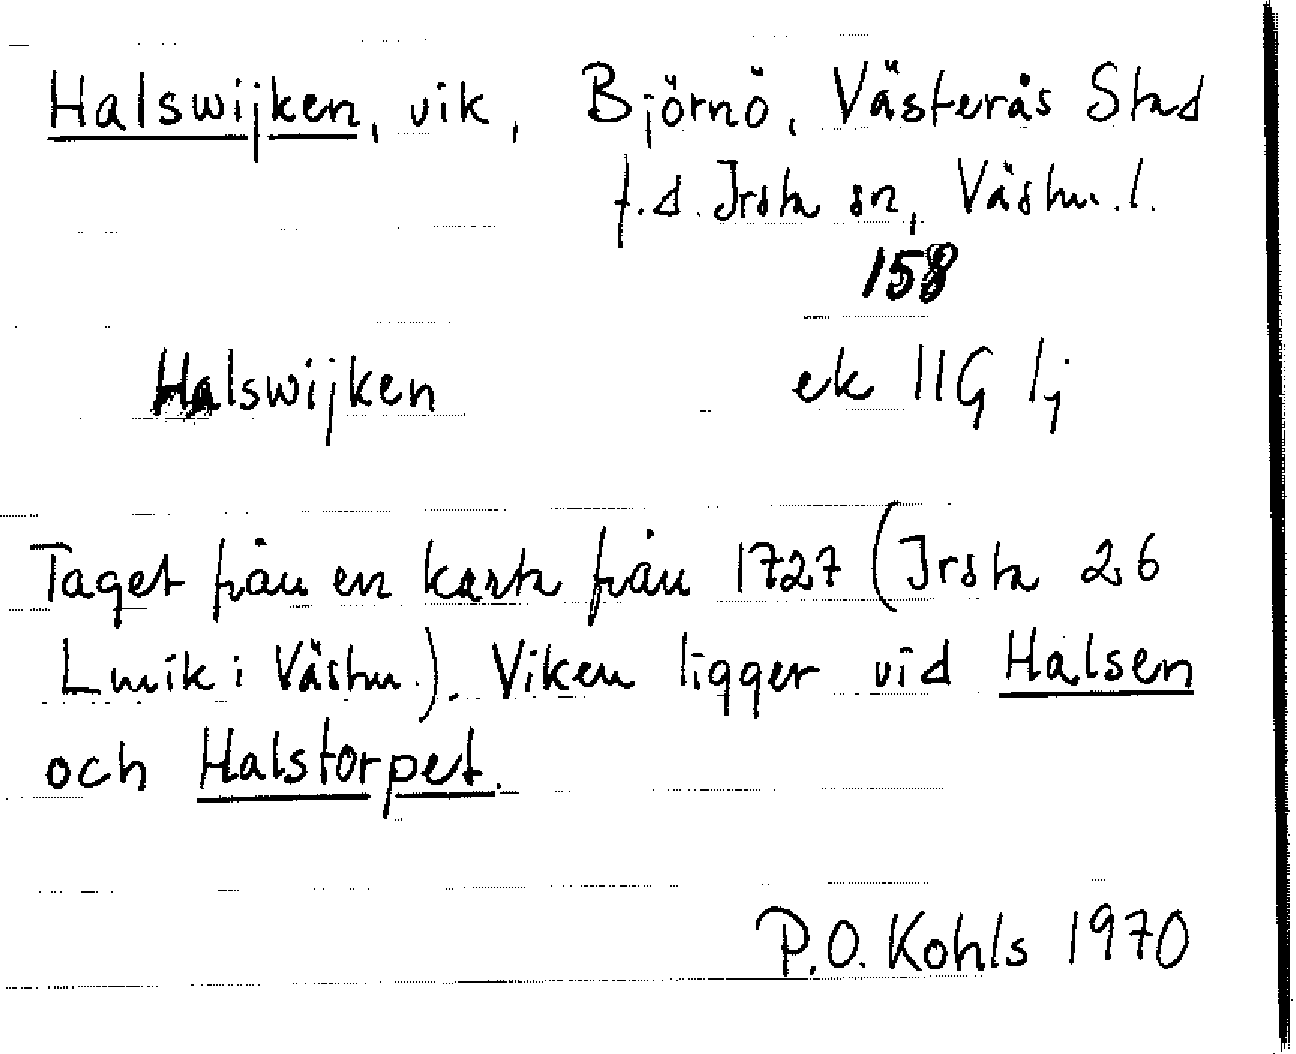 Halswijken, vik, Björnö, Västerås Stad
f.d. Irsta sn, Västm.l.
158
Halswijken ek 11G 1j
Taget från en karta från 1727 (Irsta 26
Lmik i Västm.). Viken ligger vid Halsen
och Halstorpet.
P.O. Kohls 1970